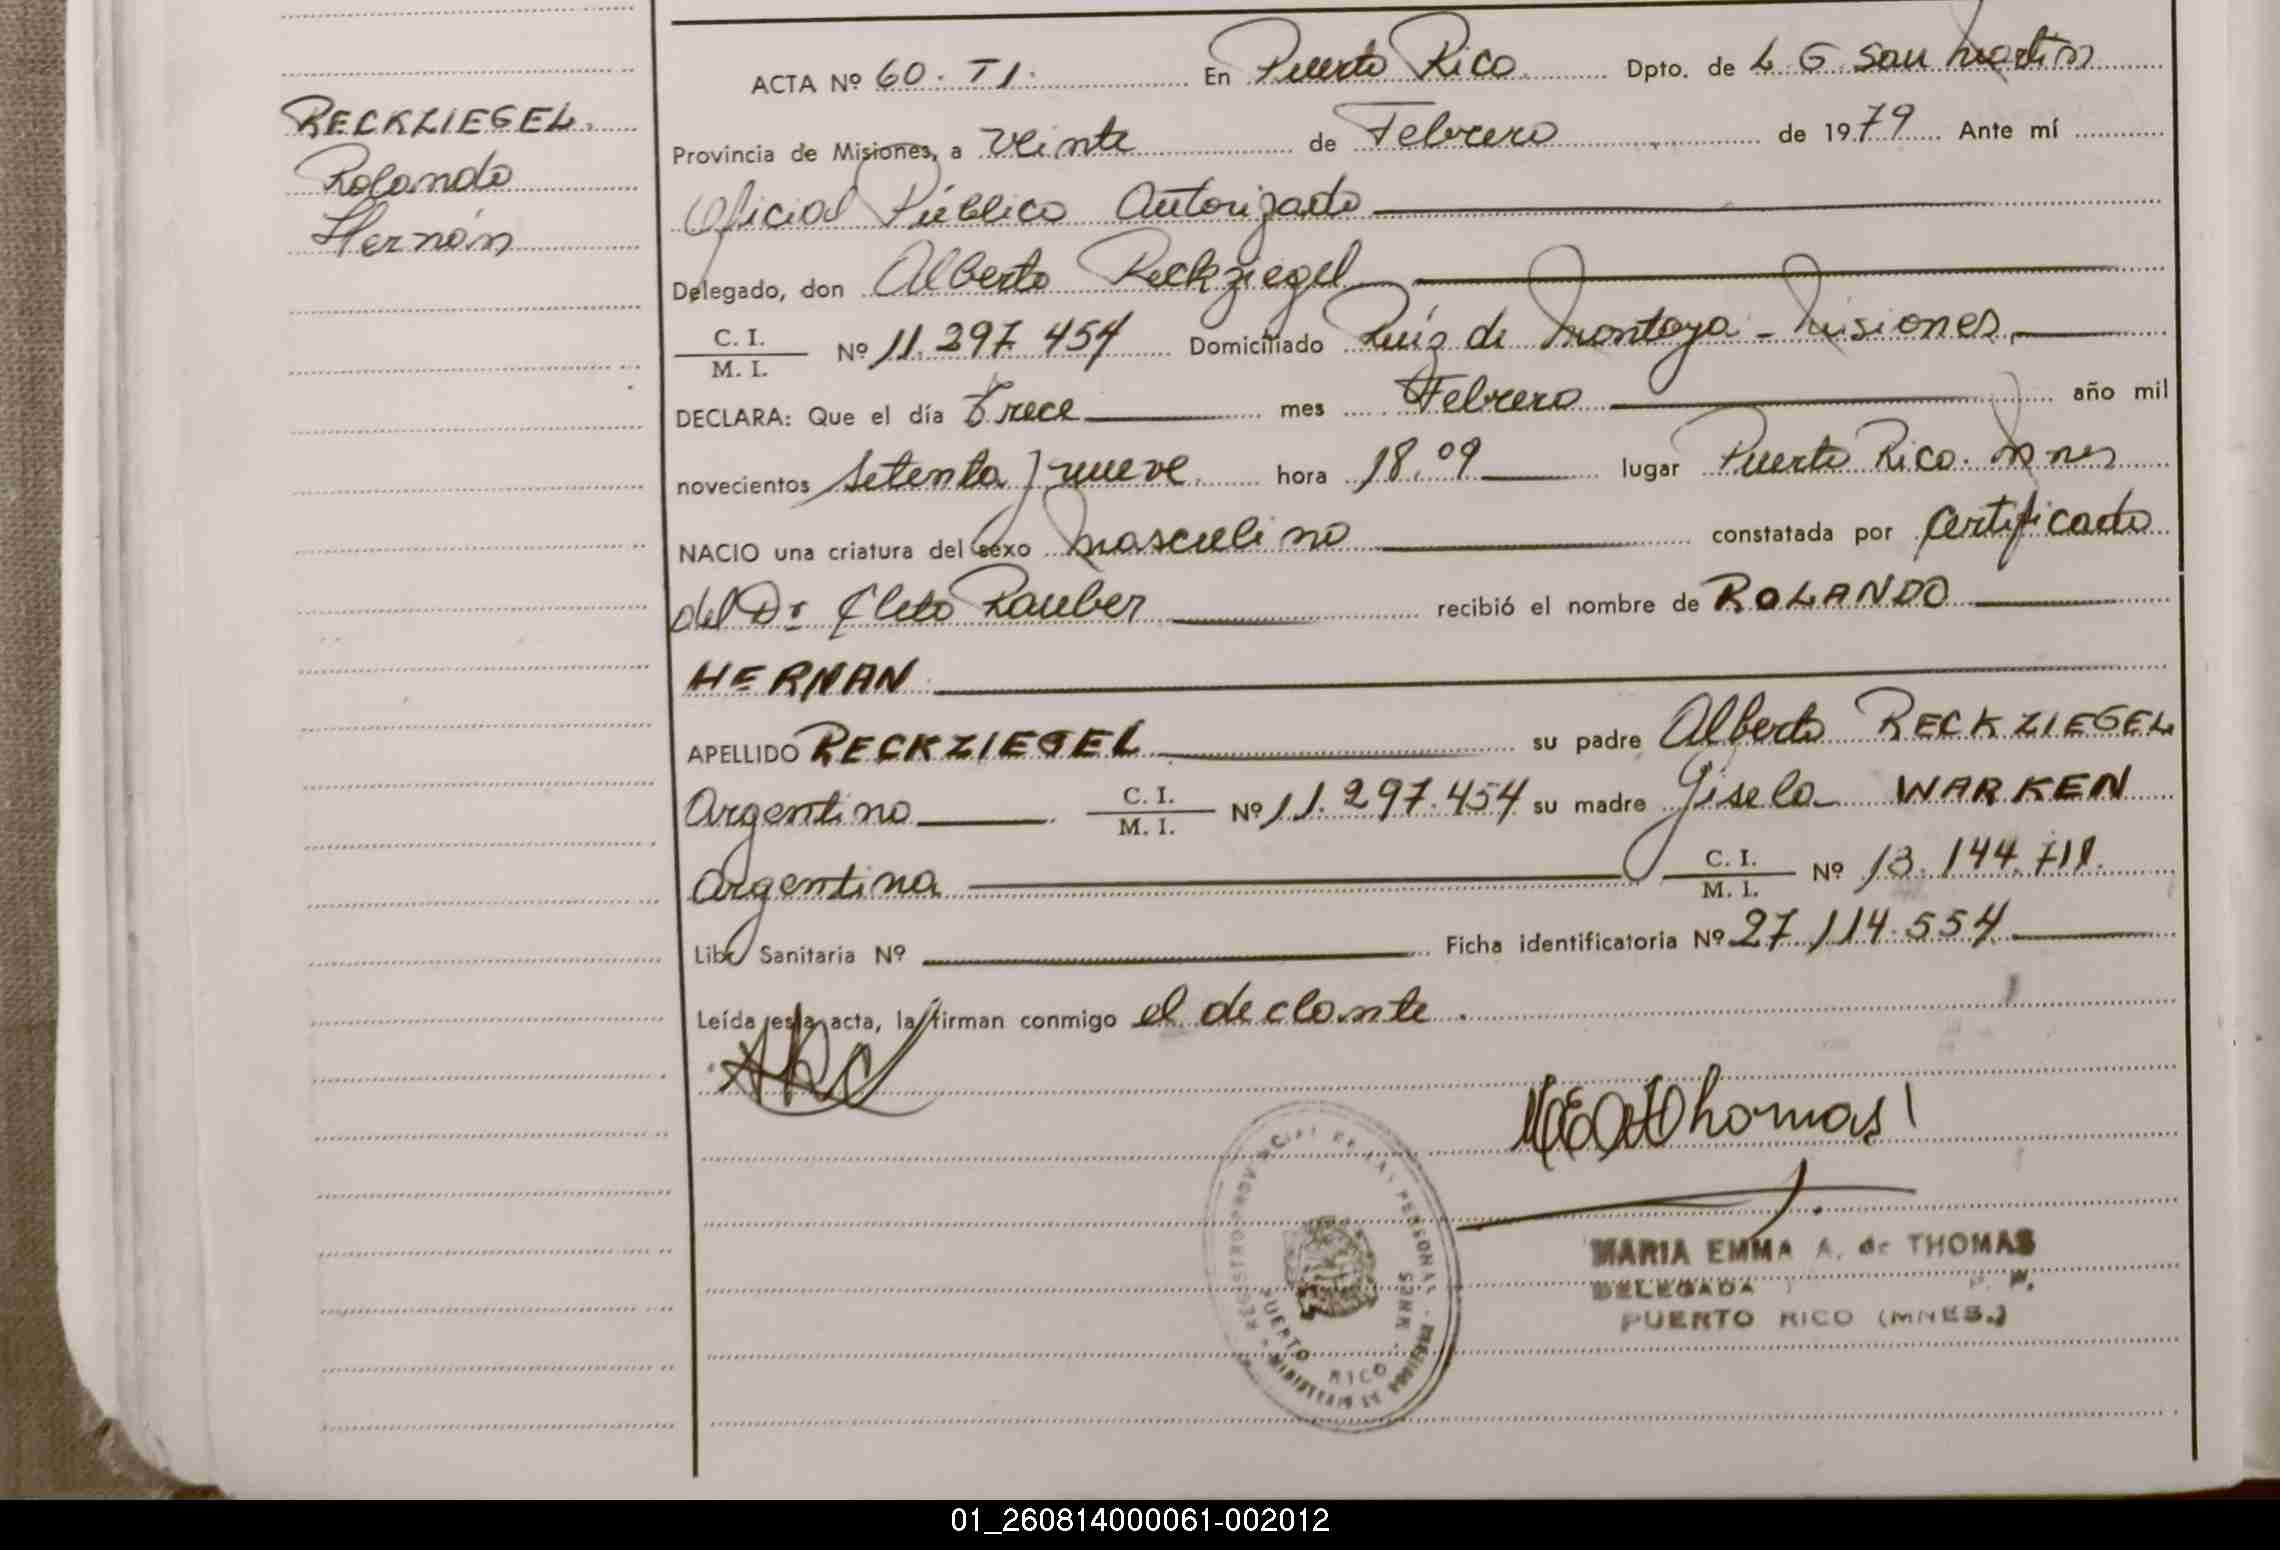 RECKZIEGEL.
Rolando
Hernán
ACTA Nº 60. TI. En Puerto Rico. Dpto. de L G San Martín
Provincia de Misiones, a veinte de Febrero de 1979 Ante mí
Oficial Público Autorizado
Delegado, don Alberto Reckziegel
C. I.
M. I. Nº 11.297.454 Domiciliado Ruíz de Montoya - Misiones
DECLARA: Que el día Trece mes Febrero año mil
novecientos setenta y nueve hora 18,09 lugar Puerto Rico. Mnes
NACIO una criatura del sexo masculino constatada por Certificado
del Dr. Cleto Rauber recibió el nombre de ROLANDO
HERNAN
APELLIDO RECKZIEGEL su padre Alberto RECKZIEGEL
Argentino C. I.
M. I. Nº 11.297.454 su madre Gisela WARKEN
Argentina C. I.
M. I. Nº 13.144.711.
Libr Sanitaria Nº Ficha identificatoria Nº 27.114.554
Leída esta acta, la firman conmigo el declante.
Thomas
MARIA EMMA A. de THOMAS
DELEGADA
PUERTO RICO (MNES.)
REGISTRO PROVINCIAL DE LAS PERSONAS
PUERTO RICO - MNES
01_260814000061-002012